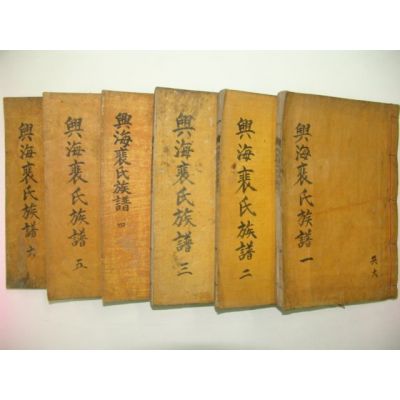 興海裵氏族譜 一
共六
興海裵氏族譜 二
興海裵氏族譜 三
興海裵氏族譜 四
興海裵氏族譜 五
興海裵氏族譜 六